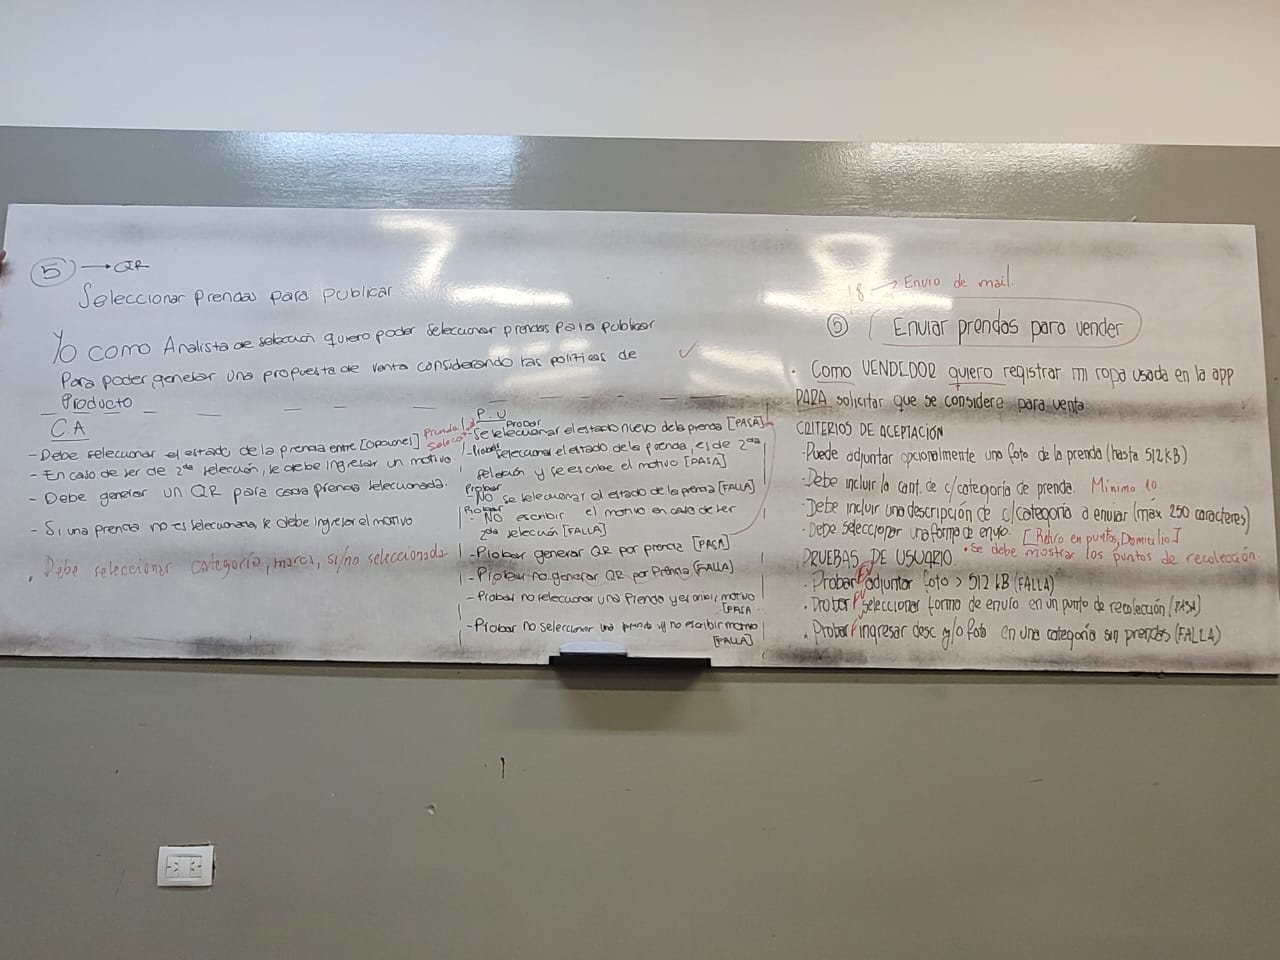 5 → QR
Seleccionar Prendas para Publicar
Yo como Analista de selección quiero poder seleccionar prendas para publicar
Para poder generar una propuesta de venta considerando las políticas de
Producto
CA
- Debe seleccionar el estado de la prenda entre [opciones]
- En caso de ser de 2da selección, se debe ingresar un motivo
- Debe generar un QR para cada prenda seleccionada.
- Si una prenda no es seleccionada se debe ingresar el motivo
. Debe seleccionar categoría, marca, si/no seleccionada
Prenda
P.U
Probar
- Se seleccionar el estado nuevo de la prenda [PASA]
- Probar seleccionar el estado de la prenda es de 2da
selección y se escribe el motivo [PASA]
Probar
- NO se seleccionar el estado de la prenda [FALLA]
Probar
- NO escribir el motivo en caso de ser
2da selección [FALLA]
- Probar generar QR por prenda [PASA]
- Probar no generar QR por Prenda [FALLA]
- Probar no seleccionar una Prenda y escribir motivo
[PASA
- Probar no seleccionar una prenda y no escribir motivo
[FALLA]
8 → Envio de mail.
5 Enviar prendas para vender
. Como VENDEDOR quiero registrar mi ropa usada en la app
PARA solicitar que se considere para venta
CRITERIOS DE ACEPTACIÓN
- Puede adjuntar opcionalmente una foto de la prenda (hasta 512kB)
- Debe incluir la cant. de c/categoría de prenda. Minimo 10
- Debe incluir una descripción de c/categoría a enviar (máx 250 caracteres)
- Debe seleccionar una forma de envío. [Retiro en puntos, Domicilio]
• Se debe mostrar los puntos de recolección
PRUEBAS DE USUARIO
• Probar adjuntar foto > 512 kB (FALLA)
• Probar seleccionar forma de envío en un punto de recolección (PASA)
• Probar ingresar desc y/o foto en una categoría sin prendas (FALLA)